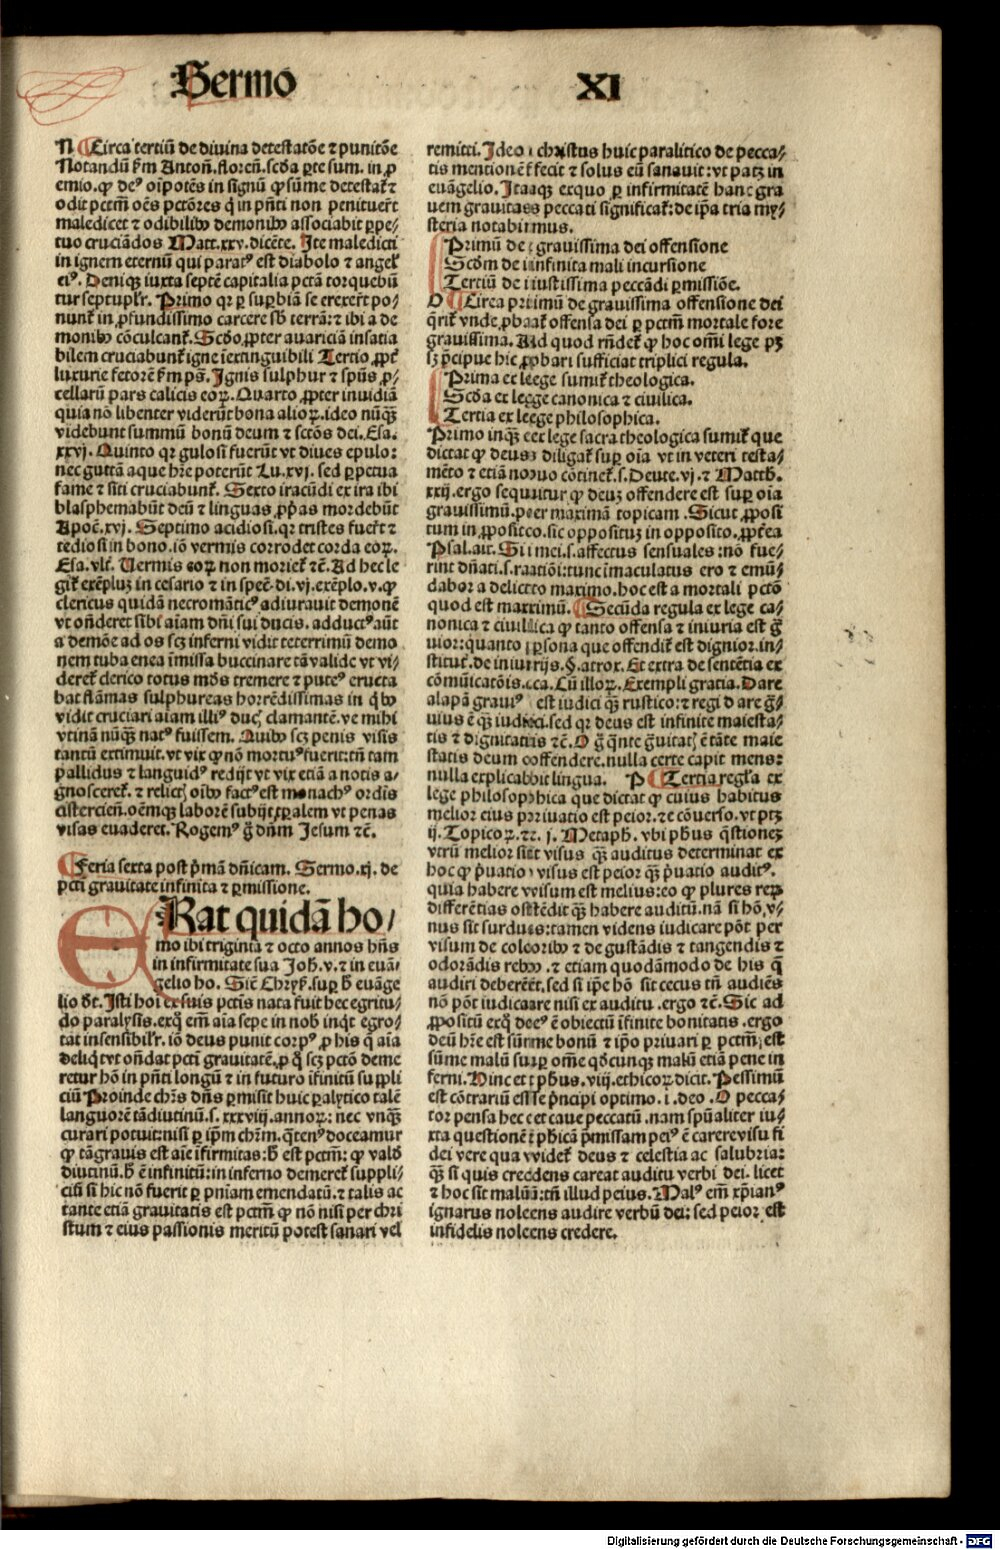 Sermo
XI
N ¶ Circa tertiū de divina detestatōe ⁊ punitōe
Notandū ẜm Antoñ. floreñ. scḋa ꝑte sum. in ꝓ
emio. ꝙ deꝰ oīpotēs in signū ꝙ sūme detestat᷑ ⁊
odit pctm̄ oēs pctōres q̇ in pn̄ti non penituer̄t
maledicet ⁊ odibilibꝰ demonibꝰ associabit ꝑpe⸗
tuo cruciādos Matt. xxv. dicēte. Ite maledicti
in ignem eternū qui paratꝰ est diabolo ⁊ angel̓
eiꝰ. Deniqꝫ iuxta septē capitalia pctā torquebū
tur septupl̓r. Primo qr ꝑ suꝑbiā se erexer̄t po⸗
nunt᷑ in ꝓfundissimo carcere sb̓ terrā: ⁊ ibi a de
monibꝰ cōculcant᷑. Scḋo, ꝓpter avariciā insatia
bilem cruciabunt᷑ igne īextinguibili Tertio, ꝓpt̓
luxurie fetorē ẜm ps̄. Ignis sulphur ⁊ spūs ꝓ⸗
cellarū pars calicis eoꝝ. Quarto ꝓpter invidiā
quia nō libenter viderūt bona alioꝝ. ideo nūqꝫ̄
videbunt summū bonū deum ⁊ sctōs dei. Esa.
xxvj. Quinto qr gulosi fuerūt vt dives epulo:
nec guttā aque hr̄e poterūt Lu. xvj. sed ꝑpetua
fame ⁊ siti cruciabunt᷑. Sexto iracūdi ex ira ibi
blasphemabūt deū ⁊ linguas ꝓp̄as mordebūt
Apoc̄. xvj. Septimo acidiosi. qr tristes fuer̄t ⁊
tediosi in bono. iō vermis corrodet corda eoꝝ.
Esa. vlt̓. Vermis eoꝝ non moriet᷑ ⁊c̄. Ad hec le
git᷑ exēpluꝫ in cesario ⁊ in spec̄. di. vj. exēplo. v. ꝙ
clericus quidā necromāticꝰ adiuravit demonē
vt on̄deret sibi aīam dn̄i sui ducis. adductꝰ aūt
a demōe ad os scꝫ inferni vidit teterrimū demo
nem tuba enea īmissa buccinare tā valide vt vi⸗
deret᷑ clerico totus mūds tremere ⁊ puteꝰ eructa
bat flāmas sulphureas horrēdissimas in q̇bꝰ
vidit cruciari aīam illiꝰ ducꝭ clamantē. ve mihi
vtinā nūqꝫ̄ natꝰ fuissem. Quibꝰ scꝫ penis visis
tantū extimuit. vt vix ꝙ nō mortuꝰ fuerit: tn̄ tam
pallidus ⁊ languidꝰ redijt vt vix etiā a notis a⸗
gnosceret᷑. ⁊ relictꝭ oībꝰ factꝰ est monachꝰ ordīs
cistercieñ. oēmqꝫ laborē subijt ꝑ salem vt penas
visas evaderet. Rogemꝰ g̊ dn̄m Jesum ⁊c̄.
¶ Feria sexta post pͥmā dn̄icam. Sermo. xj. de
pcti gravitate infinita ⁊ ꝑmissione.
ERat quidā ho⸗
mo ibi triginta ⁊ octo annos hn̄s
in infirmitate sua Joh̄. v. ⁊ in evā⸗
gelio ho. Sic̄ Chrys̓. suꝑ h̓ evāge
lio dt̓. Isti hoi ex suis pctīs nata fuit hec egritu⸗
do paralysis. exq̇ em̄ aīa sepe in nob̄ inqt̓ egro⸗
tat insensibil̓r. iō deus punit corpꝰ ꝓ his q̄ aīa
deliqt̓ vt on̄dat pcti gravitatē. ꝓ q̊ scꝫ pctō deme
retur hō in pn̄ti longū ⁊ in futuro īfinitū suppli
ciū Proinde chr̄s dn̄s ꝑmisit huic ꝑalytico talē
languorē tā diutinū. s. xxxviij. annoꝝ: nec vnqꝫ̄
curari potuit: nisi ꝑ ip̄m chr̄m. q̄tenꝰ doceamur
ꝙ tā gravis est aīe īfirmitas: h̓ est pctm̄: ꝙ valḋ
diutinū. h̓ ē infinitū: in inferno demeret᷑ suppli⸗
ciū si hic nō fuerit ꝑ pn̄iam emendatū. ⁊ talis ac
tante etiā gravitatis est pctm̄ ꝙ nō nisi per chri
stum ⁊ eius passionis meritū potest sanari vel
remitti. Ideo christus huic paralitico de pecca⸗
tis mentionē fecit ⁊ solus eū sanavit: vt patꝫ in
evāgelio. Itaqꝫ exquo ꝑ infirmitatē hanc gra
vem gravitas peccati significat᷑: de ip̄a tria my⸗
steria notabimus.
Primū de gravissima dei offensione
Scḋm de infinita mali incursione
Tertiū de iustissima peccādi ꝑmissiōe.
O ¶ Circa primū de gravissima offensione dei
q̄rit᷑ vnde, ꝓbaat᷑ offensa dei ꝑ pctm̄ mortale fore
gravissima. Ad quod rn̄det᷑ ꝙ hoc om̄i lege pꝫ
sꝫ p̄cipue hic ꝓbari sufficiat triplici regula.
Prima ex lege sumit᷑ theologica.
Scḋa ex lege canonica ⁊ civilica.
Tertia ex lege philosophica.
Primo inqꝫ̄ ex lege sacra theologica sumit᷑ que
dictat ꝙ deus diligat᷑ suꝑ oīa vt in veteri testa⸗
mēto ⁊ etiā novo cōtinet᷑. s. Deute. vj. ⁊ Matth.
xxij. ergo sequitur ꝙ deuꝫ offendere est suꝑ oīa
gravissimū. per maximā topicam. Sicut ꝓposi
tum in ꝓposito. sic oppositū in opposito. ꝓpt̓ea
Psal. ait. Si mei. s. affectus sensuales: nō fue⸗
rint dn̄ati. s. raatiōi: tunc īmaculatus ero ⁊ emū⸗
dabor a delicto maximo. hoc est a mortali pctō
quod est maximū. ¶ Secūda regula ex lege ca⸗
nonica ⁊ civilica ꝙ tanto offensa ⁊ iniuria est g̊
vior: quanto ꝑsona que offendit᷑ est dignior. in⸗
stitut̓. de iniurijs. §. atrox. Et extra de sententia ex
cōmunicatōis. c. Cū illoꝝ. Exempli gratia. Dare
alapā graviꝰ est iudici qꝫ̄ rustico: ⁊ regi dare g̊⸗
vius ē qꝫ̄ iudici. sed qr deus est infinite maiesta⸗
tis ⁊ dignitatis ⁊c̄. O g̊ q̄nte g̊vitatꝭ ē tāte maie
statis deum offendere. nulla certe capit mens:
nulla explicabit lingua. P ¶ Tertia regl̓a ex
lege philosophica que dictat ꝙ cuius habitus
melior eius privatio est peior. ⁊ ecōverso. vt ptꝫ
ij. Topicoꝝ. ⁊c. j. Metaph̄. vbi phūs q̄stionez
vtrū melior sit visus qꝫ̄ auditus determinat ex
hoc ꝙ p̄uatio visus est peior qꝫ̄ p̄uatio auditꝰ.
quia habere visum est melius: eo ꝙ plures reꝝ
differētias ostēdit qꝫ̄ habere auditū. nā si hō v⸗
nus sit surdus: tamen videns iudicare pōt per
visum de coloribꝰ ⁊ de gustādis ⁊ tangendis ⁊
odorādis rebꝰ. ⁊ etiam quodāmodo de his q̄
audiri deberēt. sed si ip̄e hō sit cecus tn̄ audiēs
nō pōt iudicare nisi ex auditu. ergo ⁊c̄. Sic ad
ꝓpositū exq̊ deꝰ ē obiectū īfinite bonitatis. ergo
deū hr̄e est sūme bonū ⁊ ip̄o privari ꝑ pctm̄, est
sūme malū suꝑ om̄e qḋcunqꝫ malū etiā pene in
ferni. Hinc et phūs. viij. ethicoꝝ dicit. Pessimū
est cōtrariū esse p̄ncipi optimo. i. deo. O pecca⸗
tor pensa hec et cave peccatū. nam spūaliter iu⸗
xta questionē phīcā p̄missam peiꝰ ē carere visu fi
dei vere qua videt᷑ deus ⁊ celestia ac salubria:
qꝫ̄ si quis credens careat auditu verbi dei. licet
⁊ hoc sit malū: tn̄ illud peius. Malꝰ em̄ xp̄ianꝰ
ignarus nolens audire verbū dei: sed peior est
infidelis nolens credere.
Digitalisierung gefördert durch die Deutsche Forschungsgemeinschaft - DFG